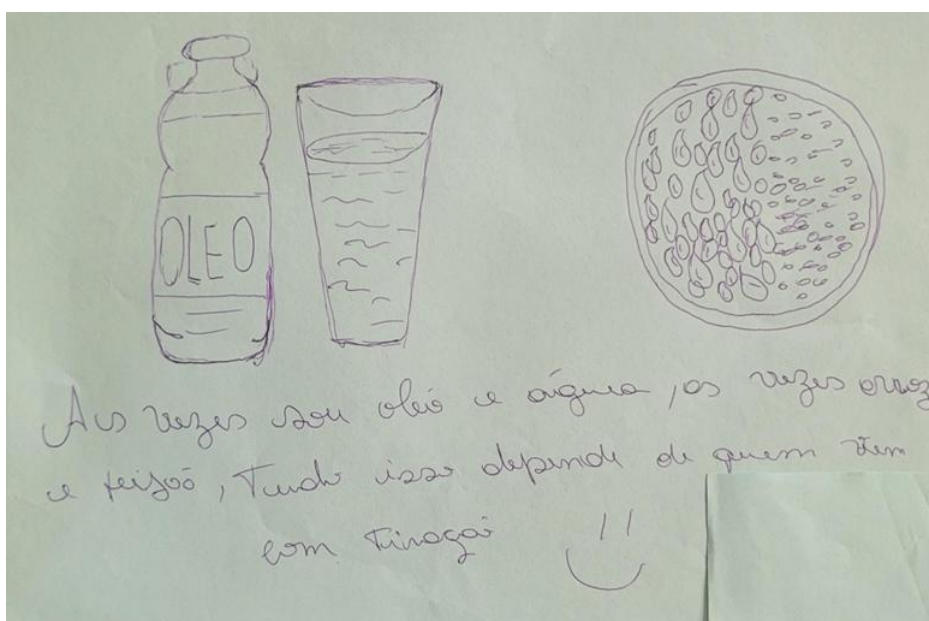 OLEO
As vezes sou oleo e água, as vezes arroz
e feijoó, Tudo isso depende de quem vem
com